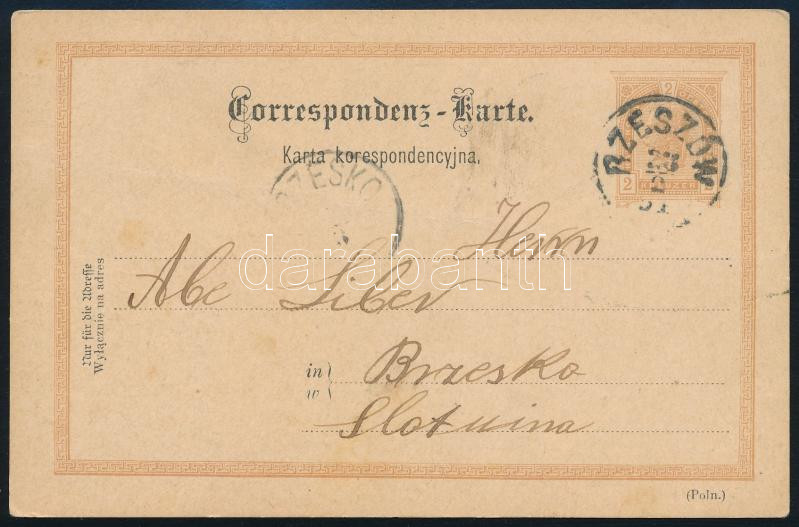 2
Correspondenz-Karte.
Karta korespondencyjna.
RZESZÓW
2 KREUZER 2
RZESKO
Herrn
Abe Siber
in Brzesko
w
Slotwina
Nur für die Adresse
Wyłącznie na adres
darabanth
(Poln.)